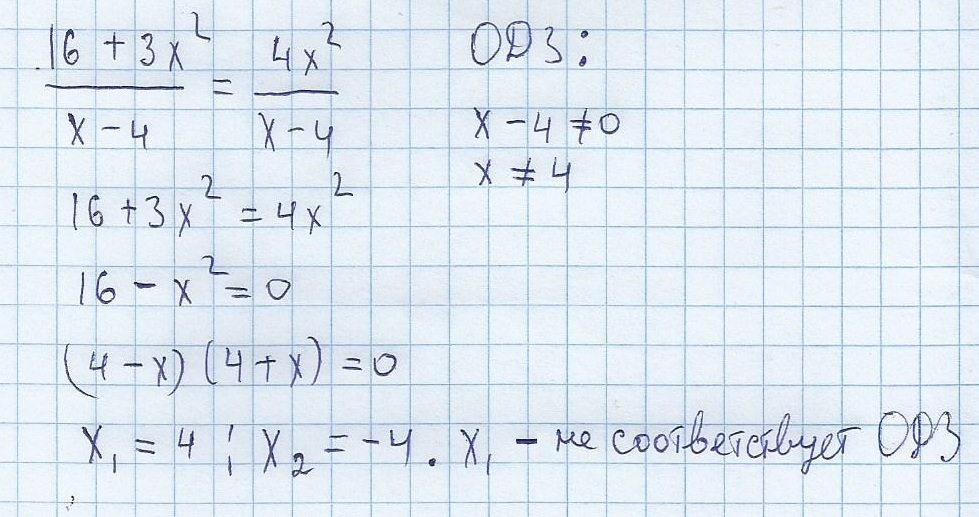 16 + 3x² / x - 4 = 4x² / x - 4
ОДЗ:
x - 4 ≠ 0
x ≠ 4
16 + 3x² = 4x²
16 - x² = 0
(4 - x) (4 + x) = 0
x₁ = 4 ; x₂ = -4 . x₁ - не соответствует ОДЗ